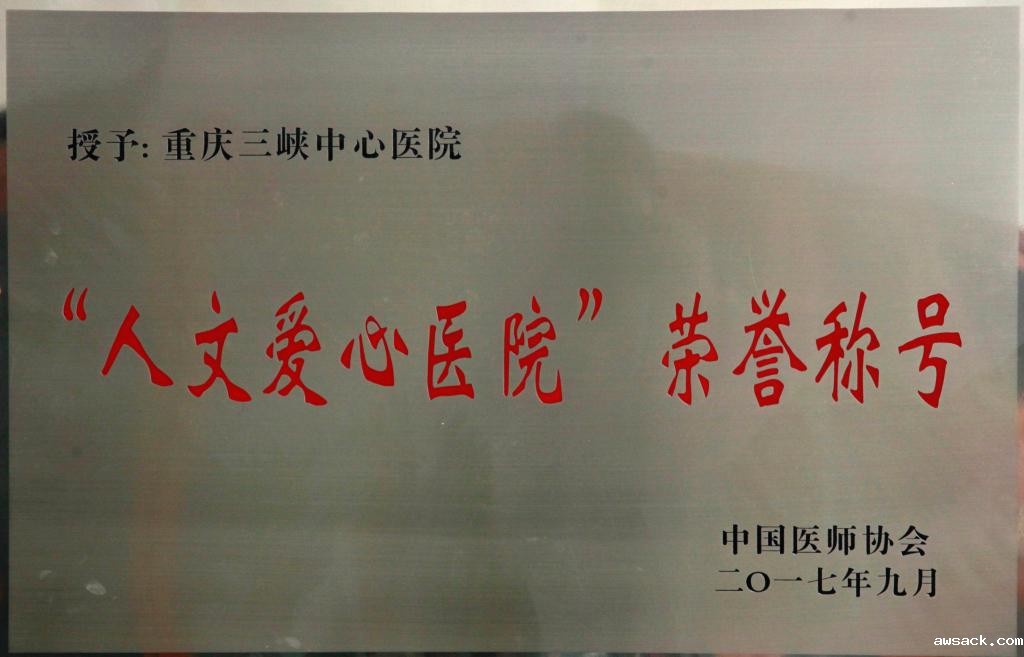 授予: 重庆三峡中心医院
“人文爱心医院”荣誉称号
中国医师协会
二〇一七年九月
awsack.com